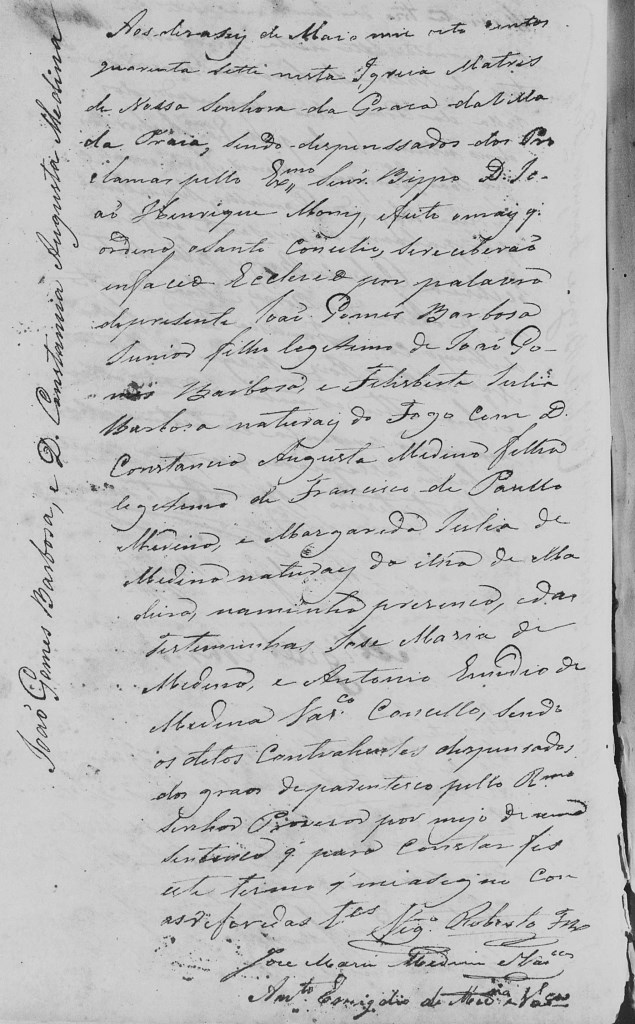 João Gomes Barbosa, e D. Constancia Augusta Medina
Aos dezasey de Maio mil oito centos
quarenta setti nesta Igreia Matris
de Nossa Senhora da Graca da Villa
da Praia, sendo despenssados dos Pro
clamas pello Exmo Senr. Bispo D. Jo-
aõ Henrique Moniz, e tudo o may q.
ordena o Santo Concilio, se receberaõ
in facie Ecclesie por palavra
de presente Joaõ Gomes Barbosa
Junior filho legitimo de Joaõ Go-
mes Barbosa, e Felisberta Julia
Barbosa naturaes do Fogo com D.
Constancia Augusta Medina filha
legitima de Francisco de Paullo
Medina, e Margareda Julia de
Medina naturaes da ilha de Ma
deira, na minha presenca, e das
testeminhas Jose Maria de
Medina, e Antonio Emedio de
Medina Vas.co Concello, sendo
os ditos Contrahentes despensados
dos graos de parentesco pello Rmo
Senhor Provesor por mejo de uma
sentenca q para Constar fis
este termo q me asegno con
as referidas tes Vig.o Roberto
Jose Maria Medina e
Anto Emigdio de Medina e Vascos